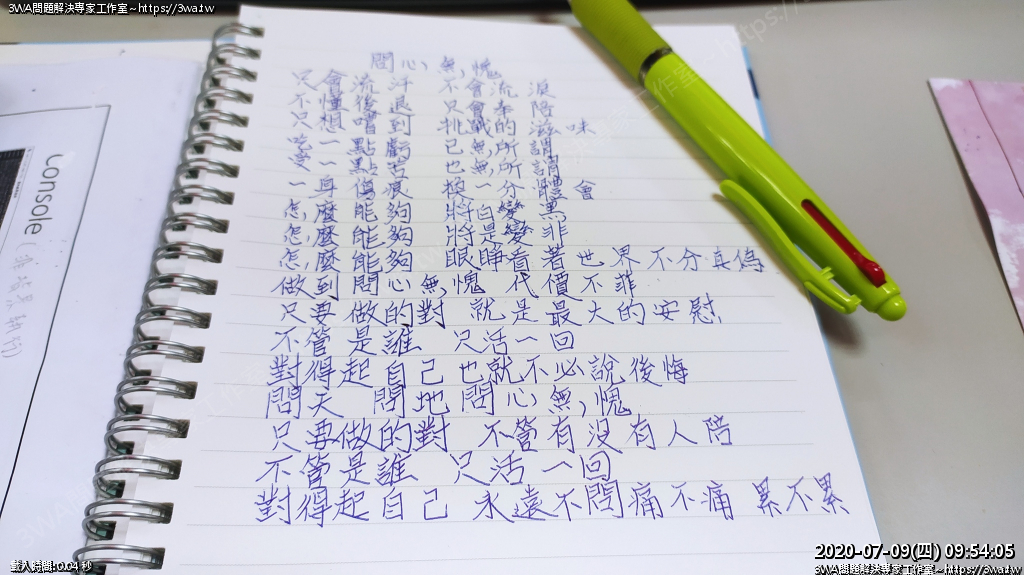 3WA問題解決專家工作室~https://3wa.tw
問心無愧
只會流汗 不會流淚
不懂後退 只會奉陪
只想嚐到 挑戰的滋味
吃一點虧 已無所謂
受一點苦 也無所謂
一身傷痕 換一分體會
怎麼能夠 將白變黑
怎麼能夠 將是變非
怎麼能夠 眼睜看著世界不分真偽
做到問心無愧 代價不菲
只要做的對 就是最大的安慰
不管是誰 只活一回
對得起自己也就不必說後悔
問天 問地 問心無愧
只要做的對 不管有沒有人陪
不管是誰 只活一回
對得起自己 永遠不問痛不痛 累不累
Console
載入時間:0.04 秒
2020-07-09(四) 09:54:05
3WA問題解決專家工作室~https://3wa.tw